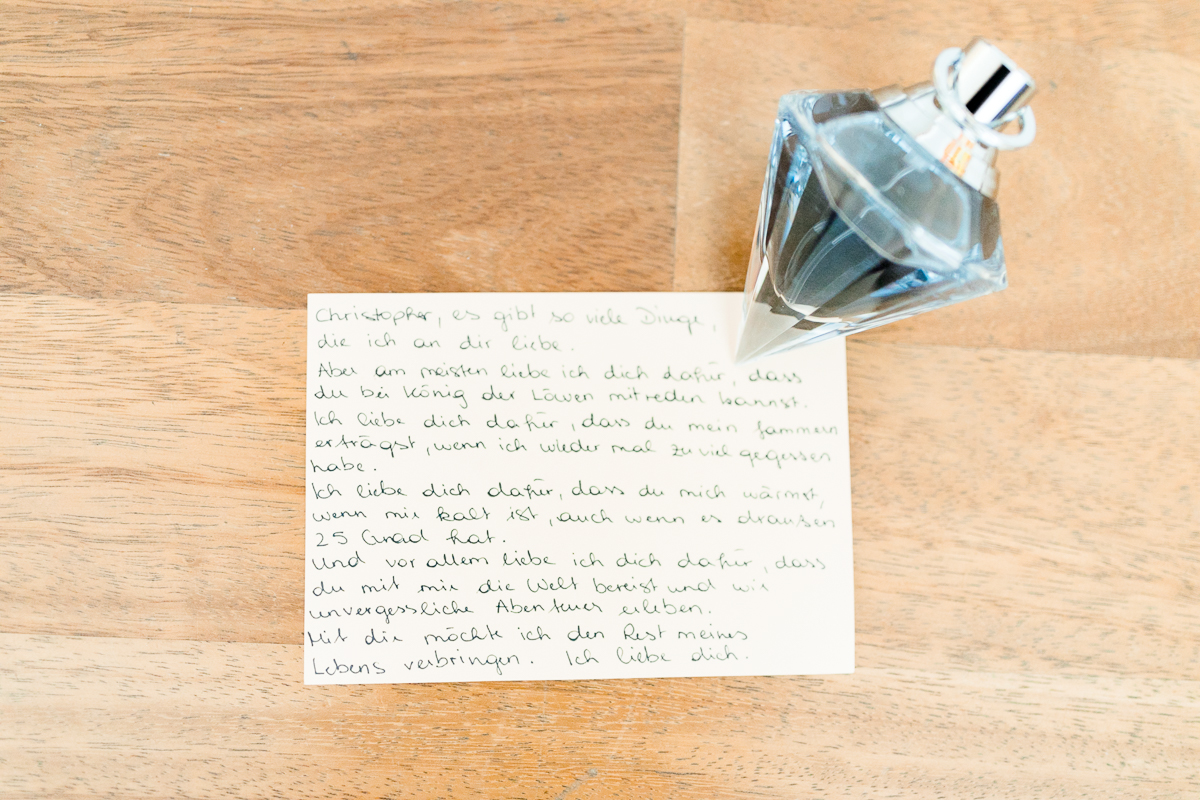 Christopher, es gibt so viele Dinge,
die ich an dir liebe.
Aber am meisten liebe ich dich dafür, dass
du bei König der Löwen mitreden kannst.
Ich liebe dich dafür, dass du mein Jammern
erträgst, wenn ich wieder mal zu viel gegessen
habe.
Ich liebe dich dafür, dass du mich wärmst,
wenn mir kalt ist, auch wenn es draußen
25 Grad hat.
Und vor allem liebe ich dich dafür, dass
du mit mir die Welt bereist und wir
unvergessliche Abenteuer erleben.
Mit dir möchte ich den Rest meines
Lebens verbringen. Ich liebe dich.